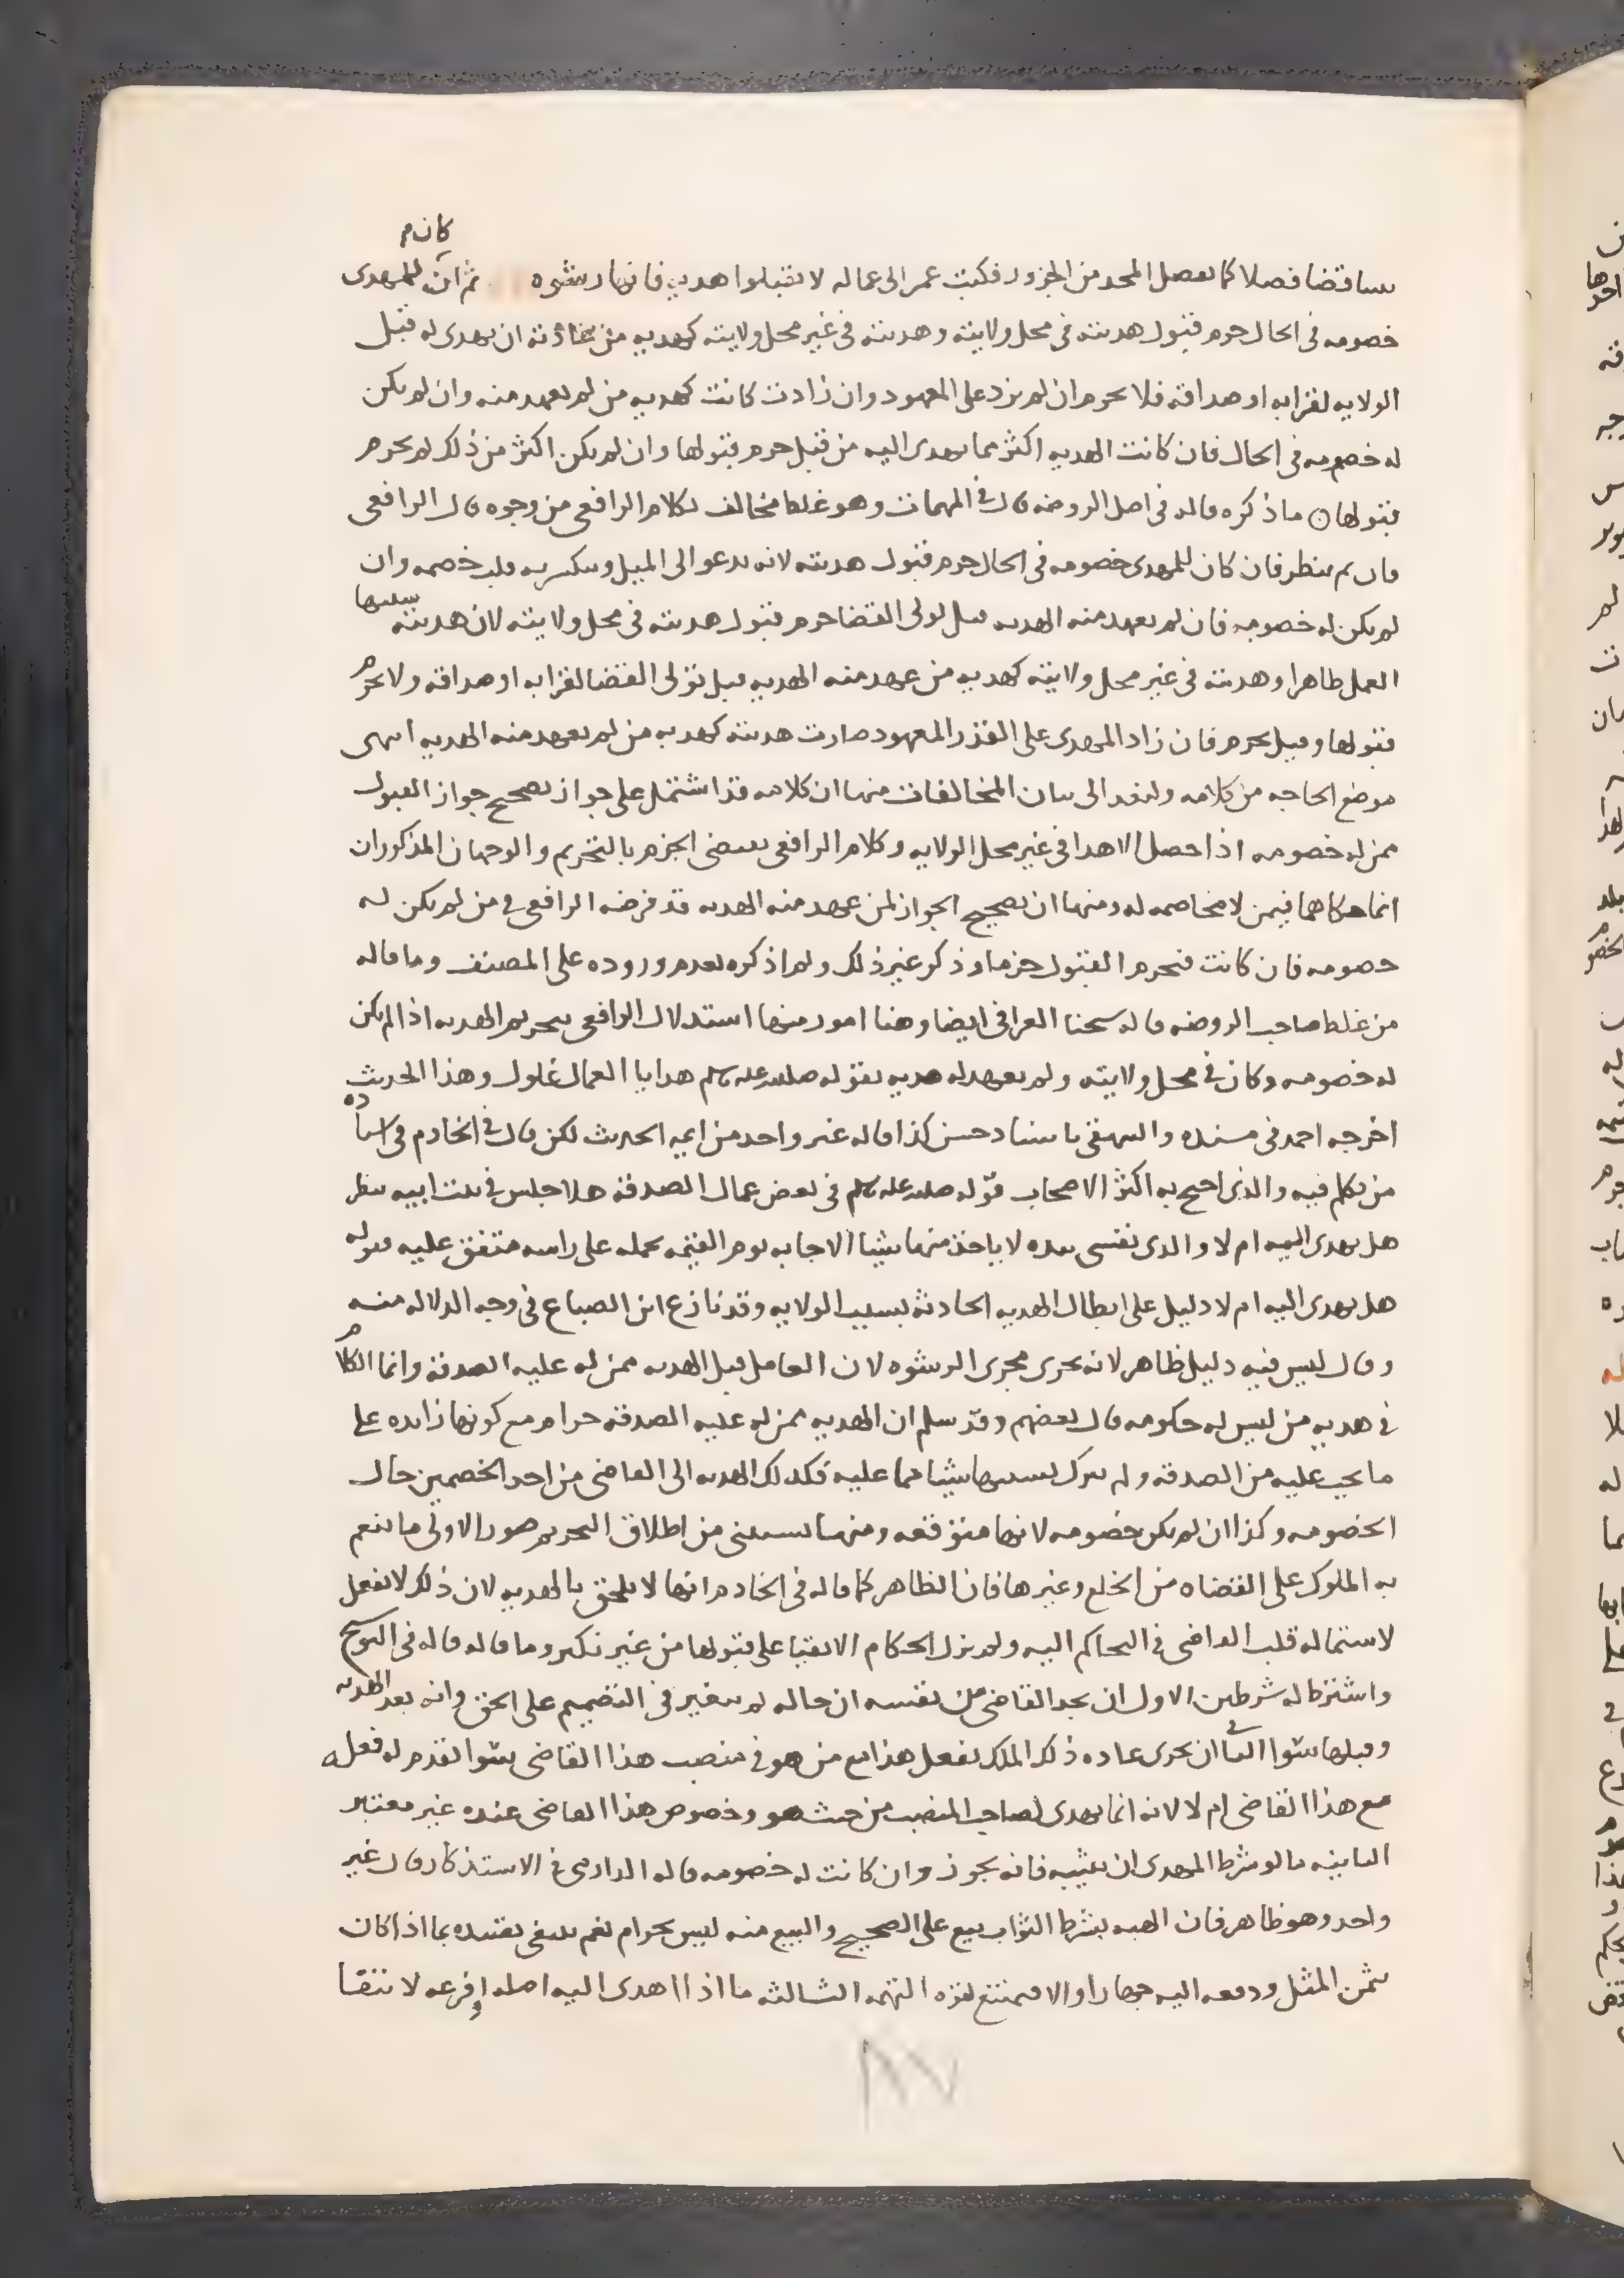 كان م
بيننا قضا فصلا كما يفصل الفخذ من الجزور فكتب عمر الى عماله لا تقبلوا هديه فانها رشوه ثم ان للمهدى
خصومه فى الحال حرم قبول هديته فى محل ولايته وهديته فى غير محل ولايته كهديه من عادته ان يهدى له قبل
الولايه لقرابه او صداقه فلا يحرم ان لم يزد على المعهود وان زادت كانت كهديه من لم يعهد منه وان لم يكن
له خصومه فى الحال فان كانت الهديه اكثر مما يهدى اليه من قبل حرم قبولها وان لم يكن اكثر من ذلك لم يحرم
قبولها ما ذكره قاله فى اصل الروضه قال فى المهمات وهو غلط مخالف لكلام الرافعى من وجوه قال الرافعى
قال ثم ينظر فان كان للمهدى خصومه فى الحال حرم قبول هديته لانه يدعو الى الميل وينكسر به قلب خصمه وان
لم يكن له خصومه فان لم يعهد منه الهديه قبل تولى القضا حرم قبول هديته فى محل ولايته لان هديته سببها
العمل ظاهرا وهديته فى غير محل ولايته كهديه من عهد منه الهديه قبل تولى القضا لقرابه او صداقه ولا يحرم
قبولها وقيل يحرم فان زاد المهدى على القدر المعهود صارت هديته كهديه من لم يعهد منه الهديه انتهى
موضع الحاجه من كلامه ولنعد الى بيان المخالفات منها ان كلامه قد اشتمل على جواز تصحيح جواز القبول
ممن له خصومه اذا حصل الاهدا فى غير محل الولايه وكلام الرافعى يقتضى الجزم بالتحريم والوجهان المذكوران
انما حكاهما فيمن لا مخاصمه له ومنها ان تصحيح الجواز لمن عهد منه الهديه قد فرضه الرافعى فى من لم يكن له
خصومه فان كانت فتحرم القبول جزما وذكر غير ذلك ولم اذكره لعدم وروده على المصنف وما قاله
من غلط صاحب الروضه قاله شيخنا العراقى ايضا وهنا امور منها استدلال الرافعى بتحريم الهديه اذا لم يكن
له خصومه وكان فى محل ولايته ولم يعهد له هديه بقوله صلى الله عليه وسلم هدايا العمال غلول وهذا الحديث
اخرجه احمد فى مسنده والبيهقى باسناد حسن كذا قاله غير واحد من ايمه الحديث لكن قال فى الخادم فى اسناده
من تكلم فيه والذى احتج به اكثر الاصحاب قوله صلى الله عليه وسلم فى بعض عمال الصدقه هلا جلس فى بيت ابيه ينظر
هل يهدى اليه ام لا والذى نفسى بيده لا ياخذ منها شيا الا جا به يوم القيمه يحمله على راسه متفق عليه فقوله
هل يهدى اليه ام لا دليل على ابطال الهديه الحادثه بسبب الولايه وقد نازع ابن الصباغ فى وجه الدلاله منه
وقال ليس فيه دليل ظاهر لانه يجرى مجرى الرشوه لان العامل قبل الهديه ممن له عليه الصدقه وانما الكلام
فى هديه من ليس له حكومه قال بعضهم وقد سلم ان الهديه ممن له عليه الصدقه حرام مع كونها زايده على
ما يجب عليه من الصدقه ولم يترك بسببها شيا مما عليه فكذلك الهديه الى القاضى من احد الخصمين حال
الخصومه وكذا ان لم يكن خصومه لانها متوقعه ومنها يستثنى من اطلاق التحريم صور الاولى ما ينعم
به الملوك على القضاه من الخلع وغيرها فان الظاهر كما قاله فى الخادم انها لا يلحق بالهديه لان ذلك لا يفعل
لاستماله قلب القاضى فى التحاكم اليه ولم يزل الحكام الاتقيا على قبولها من غير نكير وما قاله قاله فى التوشيح
واشترط له شرطين الاول ان يجد القاضى من نفسه ان حاله لم يتغير فى التصميم على الحق وانه بعد الهديه
وقبلها سوا الثانى ان يجرى عاده ذلك الملك بفعل هذا مع من هو فى منصب هذا القاضى سوا تقدم له فعله
مع هذا القاضى ام لا لانه انما يهدى لصاحب المنصب من حيث هو وخصوص هذا القاضى عنده غير معتبر
الثانيه ما لو شرط المهدى ان يثيبه فانه يجوز وان كانت له خصومه قاله الدارمى فى الاستذكار وقال غير
واحد وهو ظاهر فان الهبه بشرط الثواب بيع على الصحيح والبيع منه ليس بحرام نعم ينبغى تقييده بما اذا كان
بثمن المثل ودفعه اليه جهارا والا فيمتنع لقوه التهمه الثالثه ما اذا اهدى اليه اصله او فرعه لانتفا